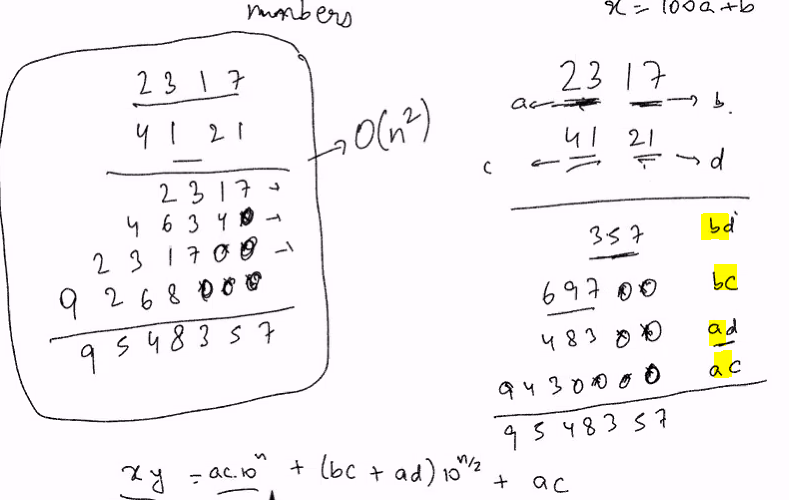 numbers
2317
4121
2317
46340
231700
9268000
9548357
→ O(n²)
x = 100a+b
a ← 23 17 → b.
c ← 41 21 → d
357 bd
69700 bc
48300 ad
9430000 ac
9548357
xy = ac.10ⁿ + (bc + ad) 10ⁿ/² + ac